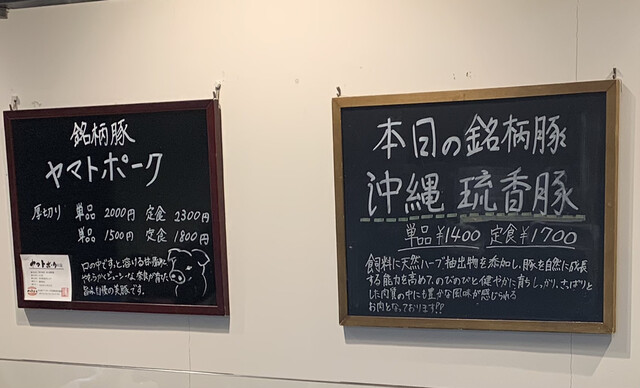 銘柄豚
ヤマトポーク
厚切り 単品 2000円 定食 2300円
単品 1500円 定食 1800円
口の中ですっと溶ける甘い脂に
奈良が育てた
旨み自慢の美豚です。
ヤマトポーク
本日の銘柄豚
沖縄 琉香豚
単品¥1400 定食¥1700
飼料に天然ハーブ抽出物を添加し、豚を自然に成長
する能力を高めて、のびのびと健やかに育ちしっかり、さっぱりと
した肉質の中にも豊かな風味が感じられる
お肉となっております!!